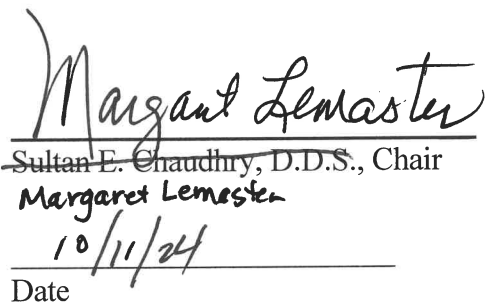 Margaret Lemaster
Sultan E. Chaudhry, D.D.S., Chair
Margaret Lemaster
10/11/24
Date